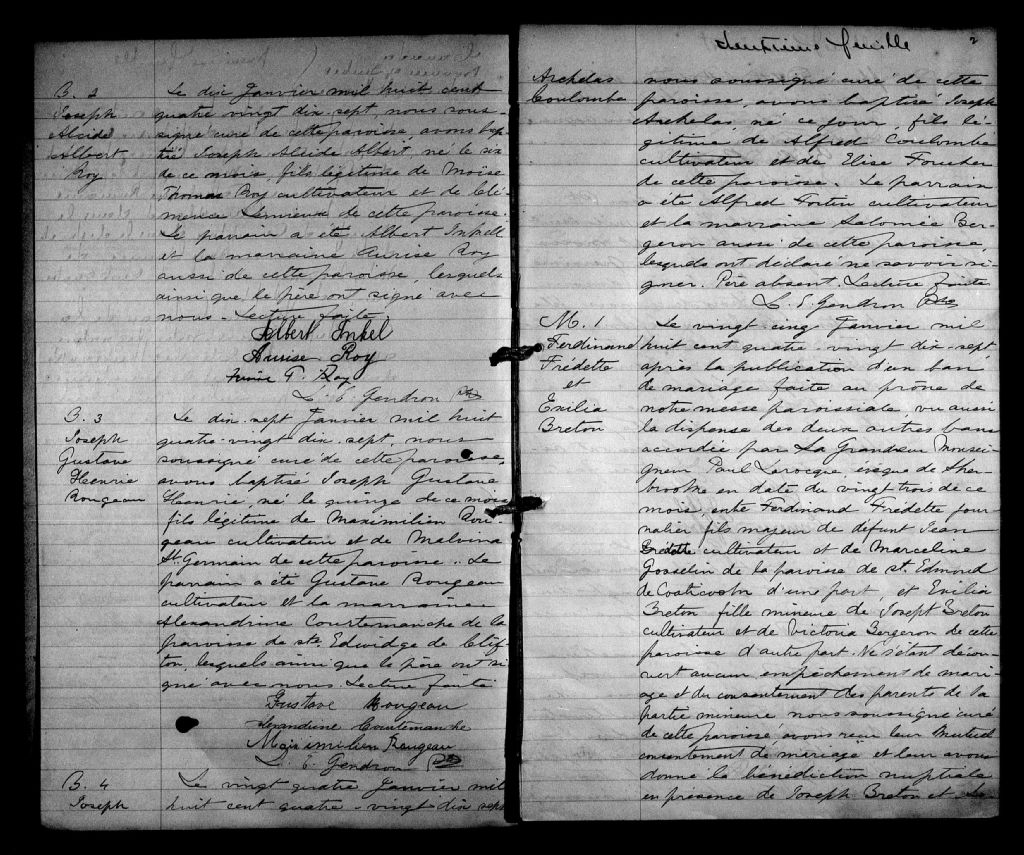 B. 2
Joseph
Alcide
Albert
Roy
Le dix Janvier mil huit cent
quatre vingt dix-sept, nous sous-
signé curé de cette paroisse, avons bap-
tisé Joseph Alcide Albert, né le six
de ce mois, fils légitime de Moïse
Thomas Roy cultivateur et de Clé-
mence Lemieux de cette paroisse.
Le parrain a été Albert Inkel
et la marraine Aurise Roy
aussi de cette paroisse, lesquels
ainsi que le père ont signé avec
nous. Lecture faite.
Albert Inkel
Aurise Roy
T. Roy
L. E. Gendron Ptre
B. 3
Joseph
Gustave
Henrie
Rougeau
Le dix-sept Janvier mil huit
quatre-vingt dix-sept, nous
soussigné curé de cette paroisse,
avons baptisé Joseph Gustave
Henrie né le quinze de ce mois
fils légitime de Maximilien Rou-
geau cultivateur et de Malvina
St. Germain de cette paroisse. Le
parrain a été Gustave Rougeau
cultivateur et la marraine
Alexandrine Courtemanche de la
paroisse de ste. Edwidge de Clif-
ton, lesquels ainsi que le père ont si-
gné avec nous. Lecture faite
Gustave Rougeau
Courtemanche
Maximilien Rougeau
L. E. Gendron Ptre
B. 4
Joseph
Le vingt quatre Janvier mil
huit cent quatre-vingt-dix sept
deuxième feuille
2
Archelas
Coulombe
nous soussigné curé de cette
paroisse, avons baptisé Joseph
Archelas, né ce jour, fils lé-
gitime de Alfred Coulombe
cultivateur et de Elise Foucher
de cette paroisse. Le parrain
a été Alfred Fortin cultivateur
et la marraine Salomée Ber-
geron aussi de cette paroisse,
lesquels ont déclaré ne savoir si-
gner. Père absent. Lecture faite
L. E. Gendron Ptre
M. 1
Ferdinand
Frédette
et
Exilia
Breton
Le vingt cinq Janvier mil
huit cent quatre-vingt dix-sept
après la publication d'un ban
de mariage faite au prône de
notre messe paroissiale, vu aussi
la dispense des deux autres bans
accordée par Sa Grandeur Monsei-
gneur Paul Larocque évêque de Sher-
brooke en date du vingt trois de ce
mois, entre Ferdinand Fredette jour-
nalier fils majeur de défunt Jean
Frédette cultivateur et de Marceline
Gosselin de la paroisse de st. Edmond
de Coaticook d'une part, et Exilia
Breton fille mineure de Joseph Breton
cultivateur et de Victoria Bergeron de cette
paroisse d'autre part. Ne s'étant décou-
vert aucun empêchement de mari-
age et du consentement des parents de la
partie mineure nous soussigné curé
de cette paroisse avons reçu leur mutuel
consentement de mariage et leur avons
donné la bénédiction nuptiale
en présence de Joseph Breton et